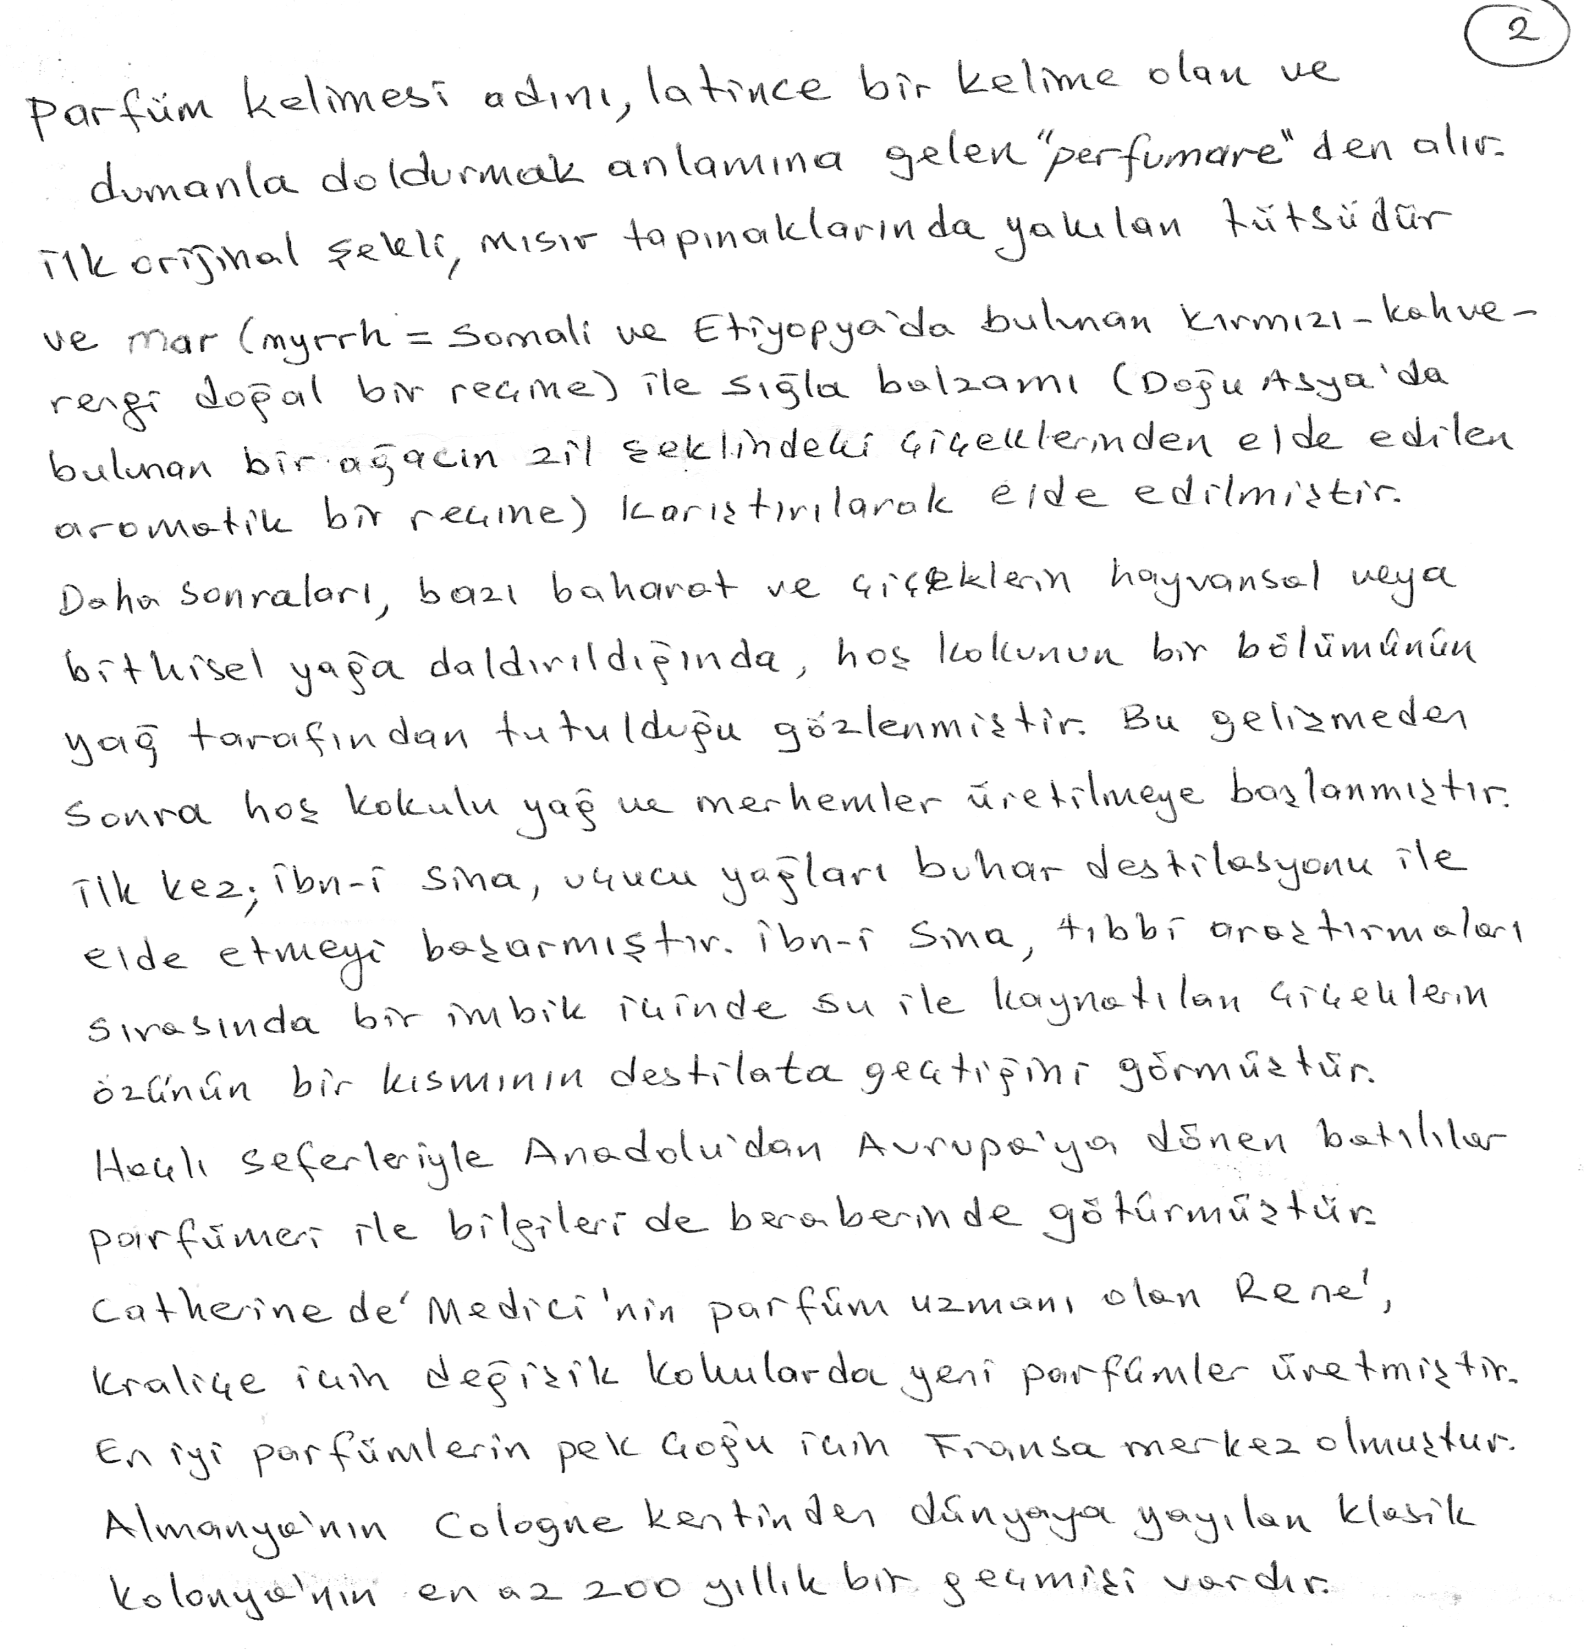 2
Parfüm kelimesi adını, latince bir kelime olan ve
dumanla doldurmak anlamına gelen "perfumare" den alır.
ilk orijinal şekli, Mısır tapınaklarında yakılan tütsüdür
ve mar (myrrh = Somali ve Etiyopya'da bulunan kırmızı-kahve-
rengi doğal bir reçine) ile sığla balzamı (Doğu Asya'da
bulunan bir ağacın zil şeklindeki çiçeklerinden elde edilen
aromatik bir reçine) karıştırılarak elde edilmiştir.
Daha sonraları, bazı baharat ve çiçeklerin hayvansal veya
bitkisel yağa daldırıldığında, hoş kokunun bir bölümünün
yağ tarafından tutulduğu gözlenmiştir. Bu gelişmeden
sonra hoş kokulu yağ ve merhemler üretilmeye başlanmıştır.
ilk kez; ibn-i Sina, uçucu yağları buhar destilasyonu ile
elde etmeyi başarmıştır. ibn-i Sina, tıbbi araştırmaları
sırasında bir imbik içinde su ile kaynatılan çiçeklerin
özünün bir kısmının destilata geçtiğini görmüştür.
Haçlı seferleriyle Anadolu'dan Avrupa'ya dönen batılılar
parfümeri ile bilgileri de beraberinde götürmüştür.
Catherine de' Medici'nin parfüm uzmanı olan Rene',
kraliçe için değişik kokularda yeni parfümler üretmiştir.
En iyi parfümlerin pek çoğu için Fransa merkez olmuştur.
Almanya'nın Cologne kentinden dünyaya yayılan klasik
kolonya'nın en az 200 yıllık bir geçmişi vardır.